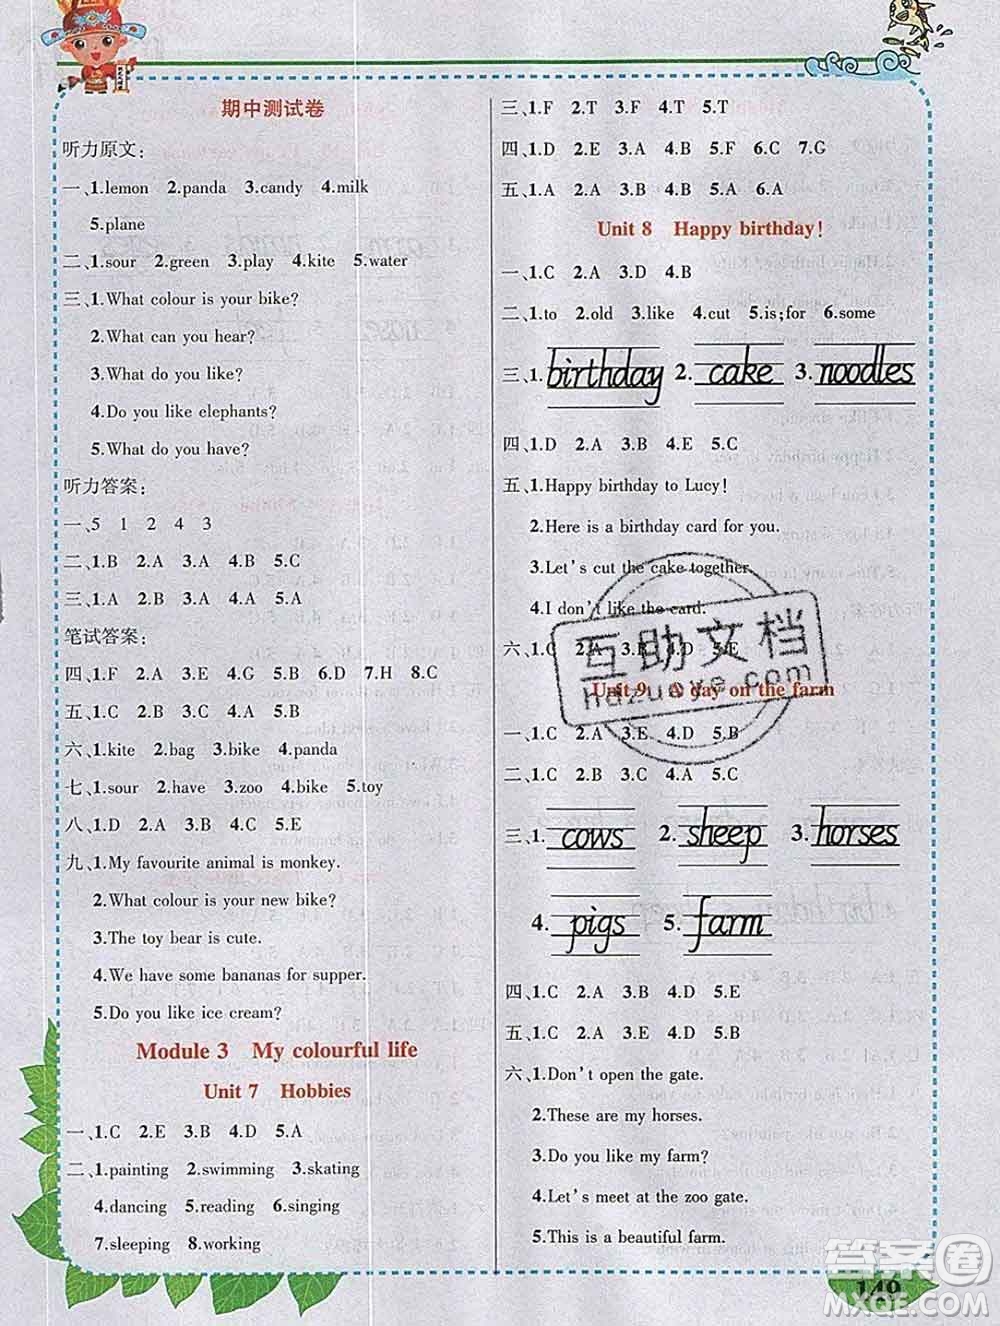 期中测试卷
听力原文：
一、1.lemon 2.panda 3.candy 4.milk
5.plane
二、1.sour 2.green 3.play 4.kite 5.water
三、1.What colour is your bike?
2.What can you hear?
3.What do you like?
4.Do you like elephants?
5.What do you have?
听力答案：
一、5 1 2 4 3
二、1.B 2.A 3.A 4.B 5.C
三、1.A 2.B 3.A 4.A 5.A
笔试答案：
四、1.F 2.A 3.E 4.G 5.B 6.D 7.H 8.C
五、1.C 2.A 3.C 4.A 5.B
六、1.kite 2.bag 3.bike 4.panda
七、1.sour 2.have 3.zoo 4.bike 5.toy
八、1.D 2.A 3.B 4.C 5.E
九、1.My favourite animal is monkey.
2.What colour is your new bike?
3.The toy bear is cute.
4.We have some bananas for supper.
5.Do you like ice cream?
Module 3 My colourful life
Unit 7 Hobbies
一、1.C 2.E 3.B 4.D 5.A
二、1.painting 2.swimming 3.skating
4.dancing 5.reading 6.singing
7.sleeping 8.working
三、1.F 2.T 3.F 4.T 5.T
四、1.D 2.E 3.A 4.B 5.C 6.F 7.G
五、1.A 2.A 3.B 4.B 5.A 6.A
Unit 8 Happy birthday!
一、1.C 2.A 3.D 4.B
二、1.to 2.old 3.like 4.cut 5.is;for 6.some
三、1.birthday 2.cake 3.noodles
四、1.D 2.A 3.B 4.E 5.C
五、1.Happy birthday to Lucy!
2.Here is a birthday card for you.
3.Let's cut the cake together.
4.I don't like the card.
六、1.C 2.A 3.B 4.D 5.E
Unit 9 A day on the farm
一、1.C 2.A 3.E 4.D 5.B
二、1.C 2.B 3.C 4.A 5.C
三、1.cows 2.sheep 3.horses
4.pigs 5.farm
四、1.C 2.A 3.B 4.D 5.E
五、1.C 2.A 3.E 4.D 5.B
六、1.Don't open the gate.
2.These are my horses.
3.Do you like my farm?
4.Let's meet at the zoo gate.
5.This is a beautiful farm.
互助文档
hdzuoye.com
答案圈
MXQE.COM
149